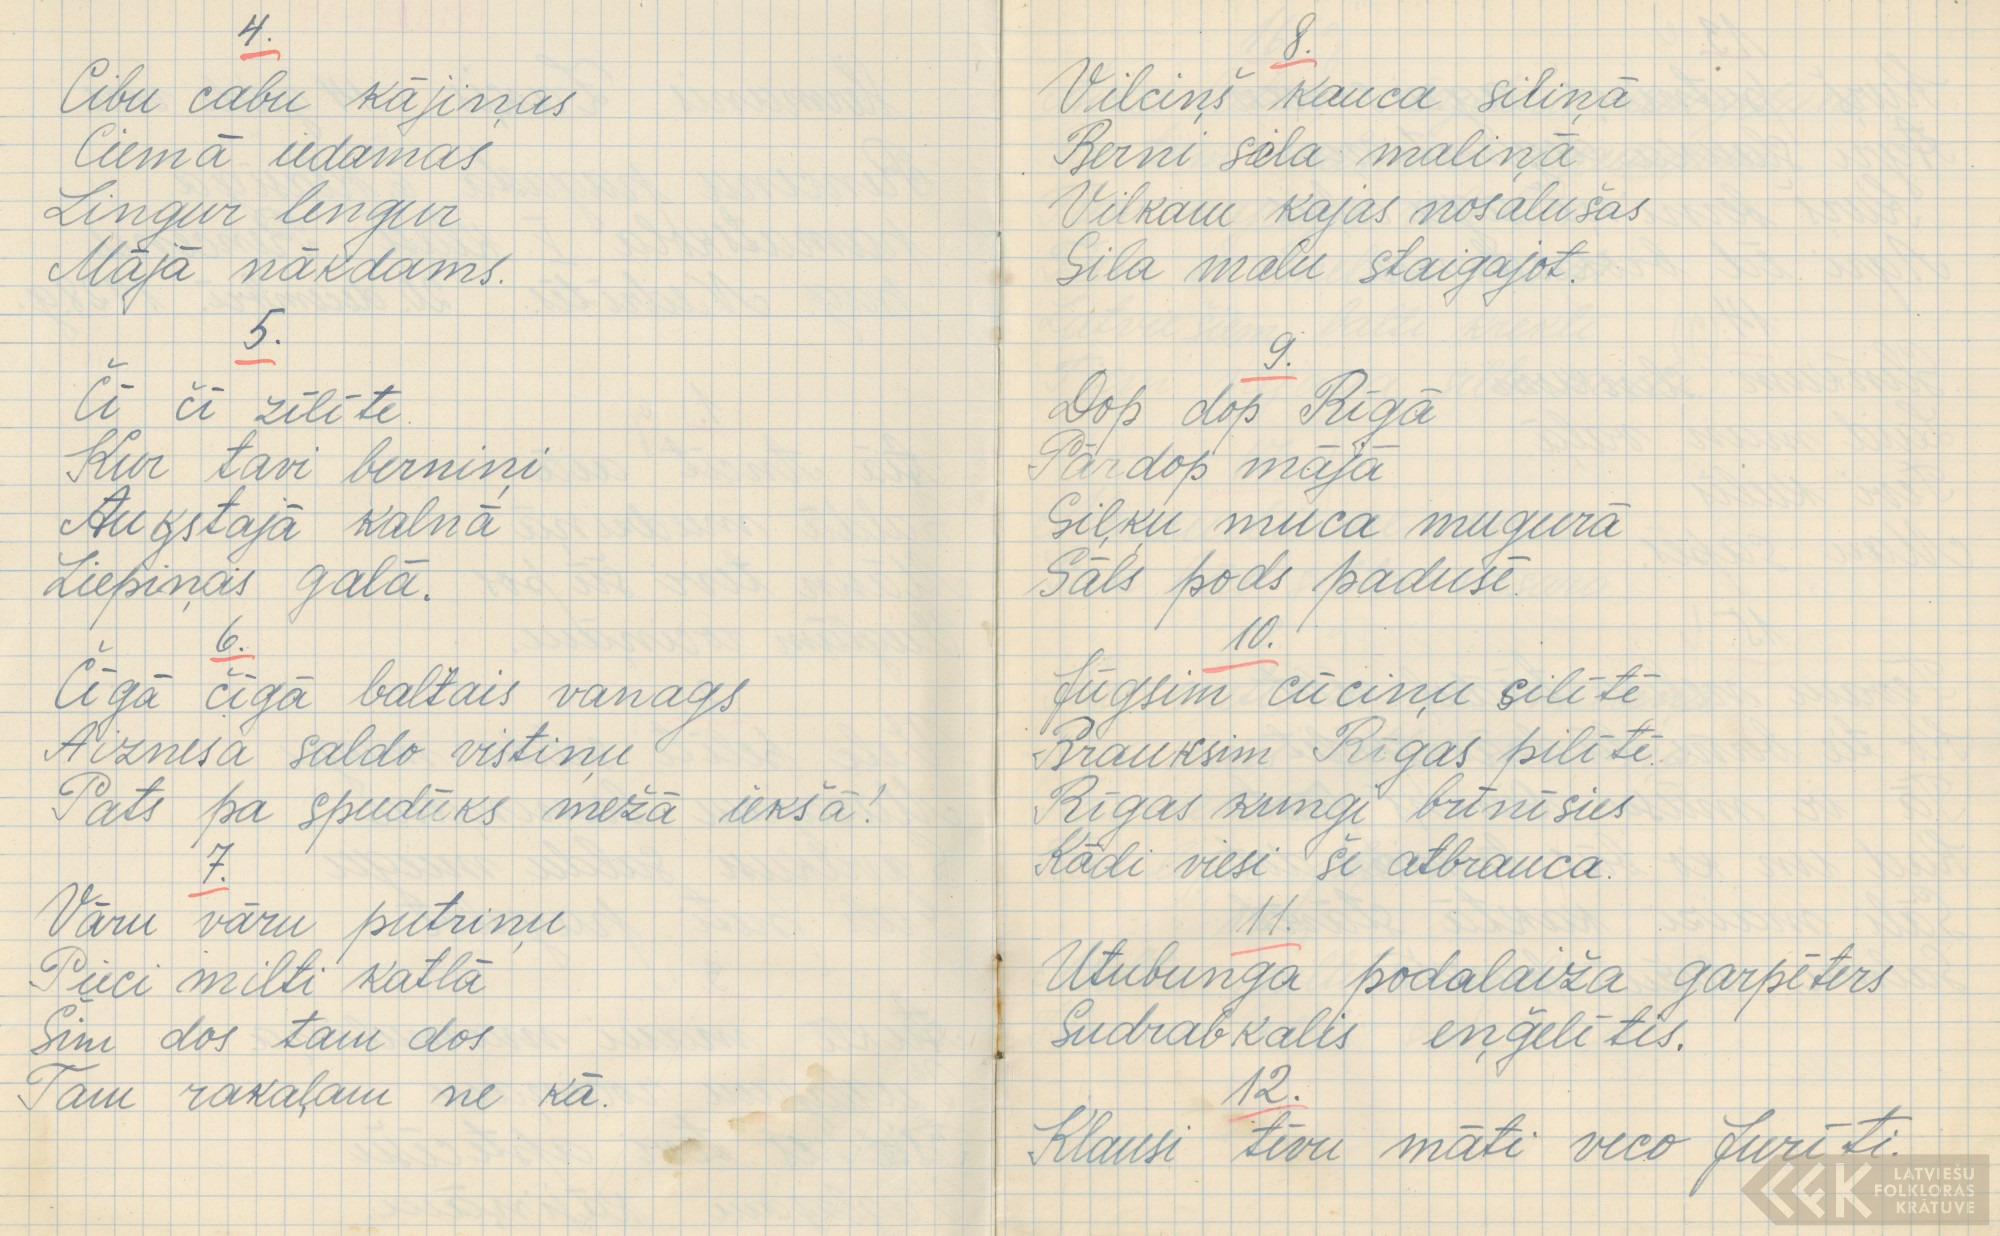 4.
Cibu cabu kājiņas
Ciemā iedamas
Lingur lengur
Mājā nākdams.
5.
Čī čī zīlīte.
Kur tavi berniņi
Augstajā kalnā
Liepiņas galā.
6.
Čīgā čīgā baltais vanags
Aiznesa saldo vistiņu
Pats pa spudūks mežā iekšā!
7.
Vāru vāru putriņu
Pieci milti katlā
Šim dos tam dos
Tam rakaļam ne kā.
8.
Vilciņš kauca siliņā
Berni sila maliņā
Vilkam kajas nosalušas
Sila malu staigajot.
9.
Dop dop Rīgā
Pārdop mājā
Siļķu muca mugurā
Sāls pods padusē.
10.
Jūgsim cūciņu silītē
Brauksim Rīgas pilītē.
Rīgas kungi brīnīsies
Kādi viesi še atbrauca.
11.
Utubunga podalaiža garpēters
Sudrabkalis eņģelītis.
12.
Klausi tēvu māti veco Jurīti.
LATVIEŠU
FOLKLORAS
KRĀTUVE